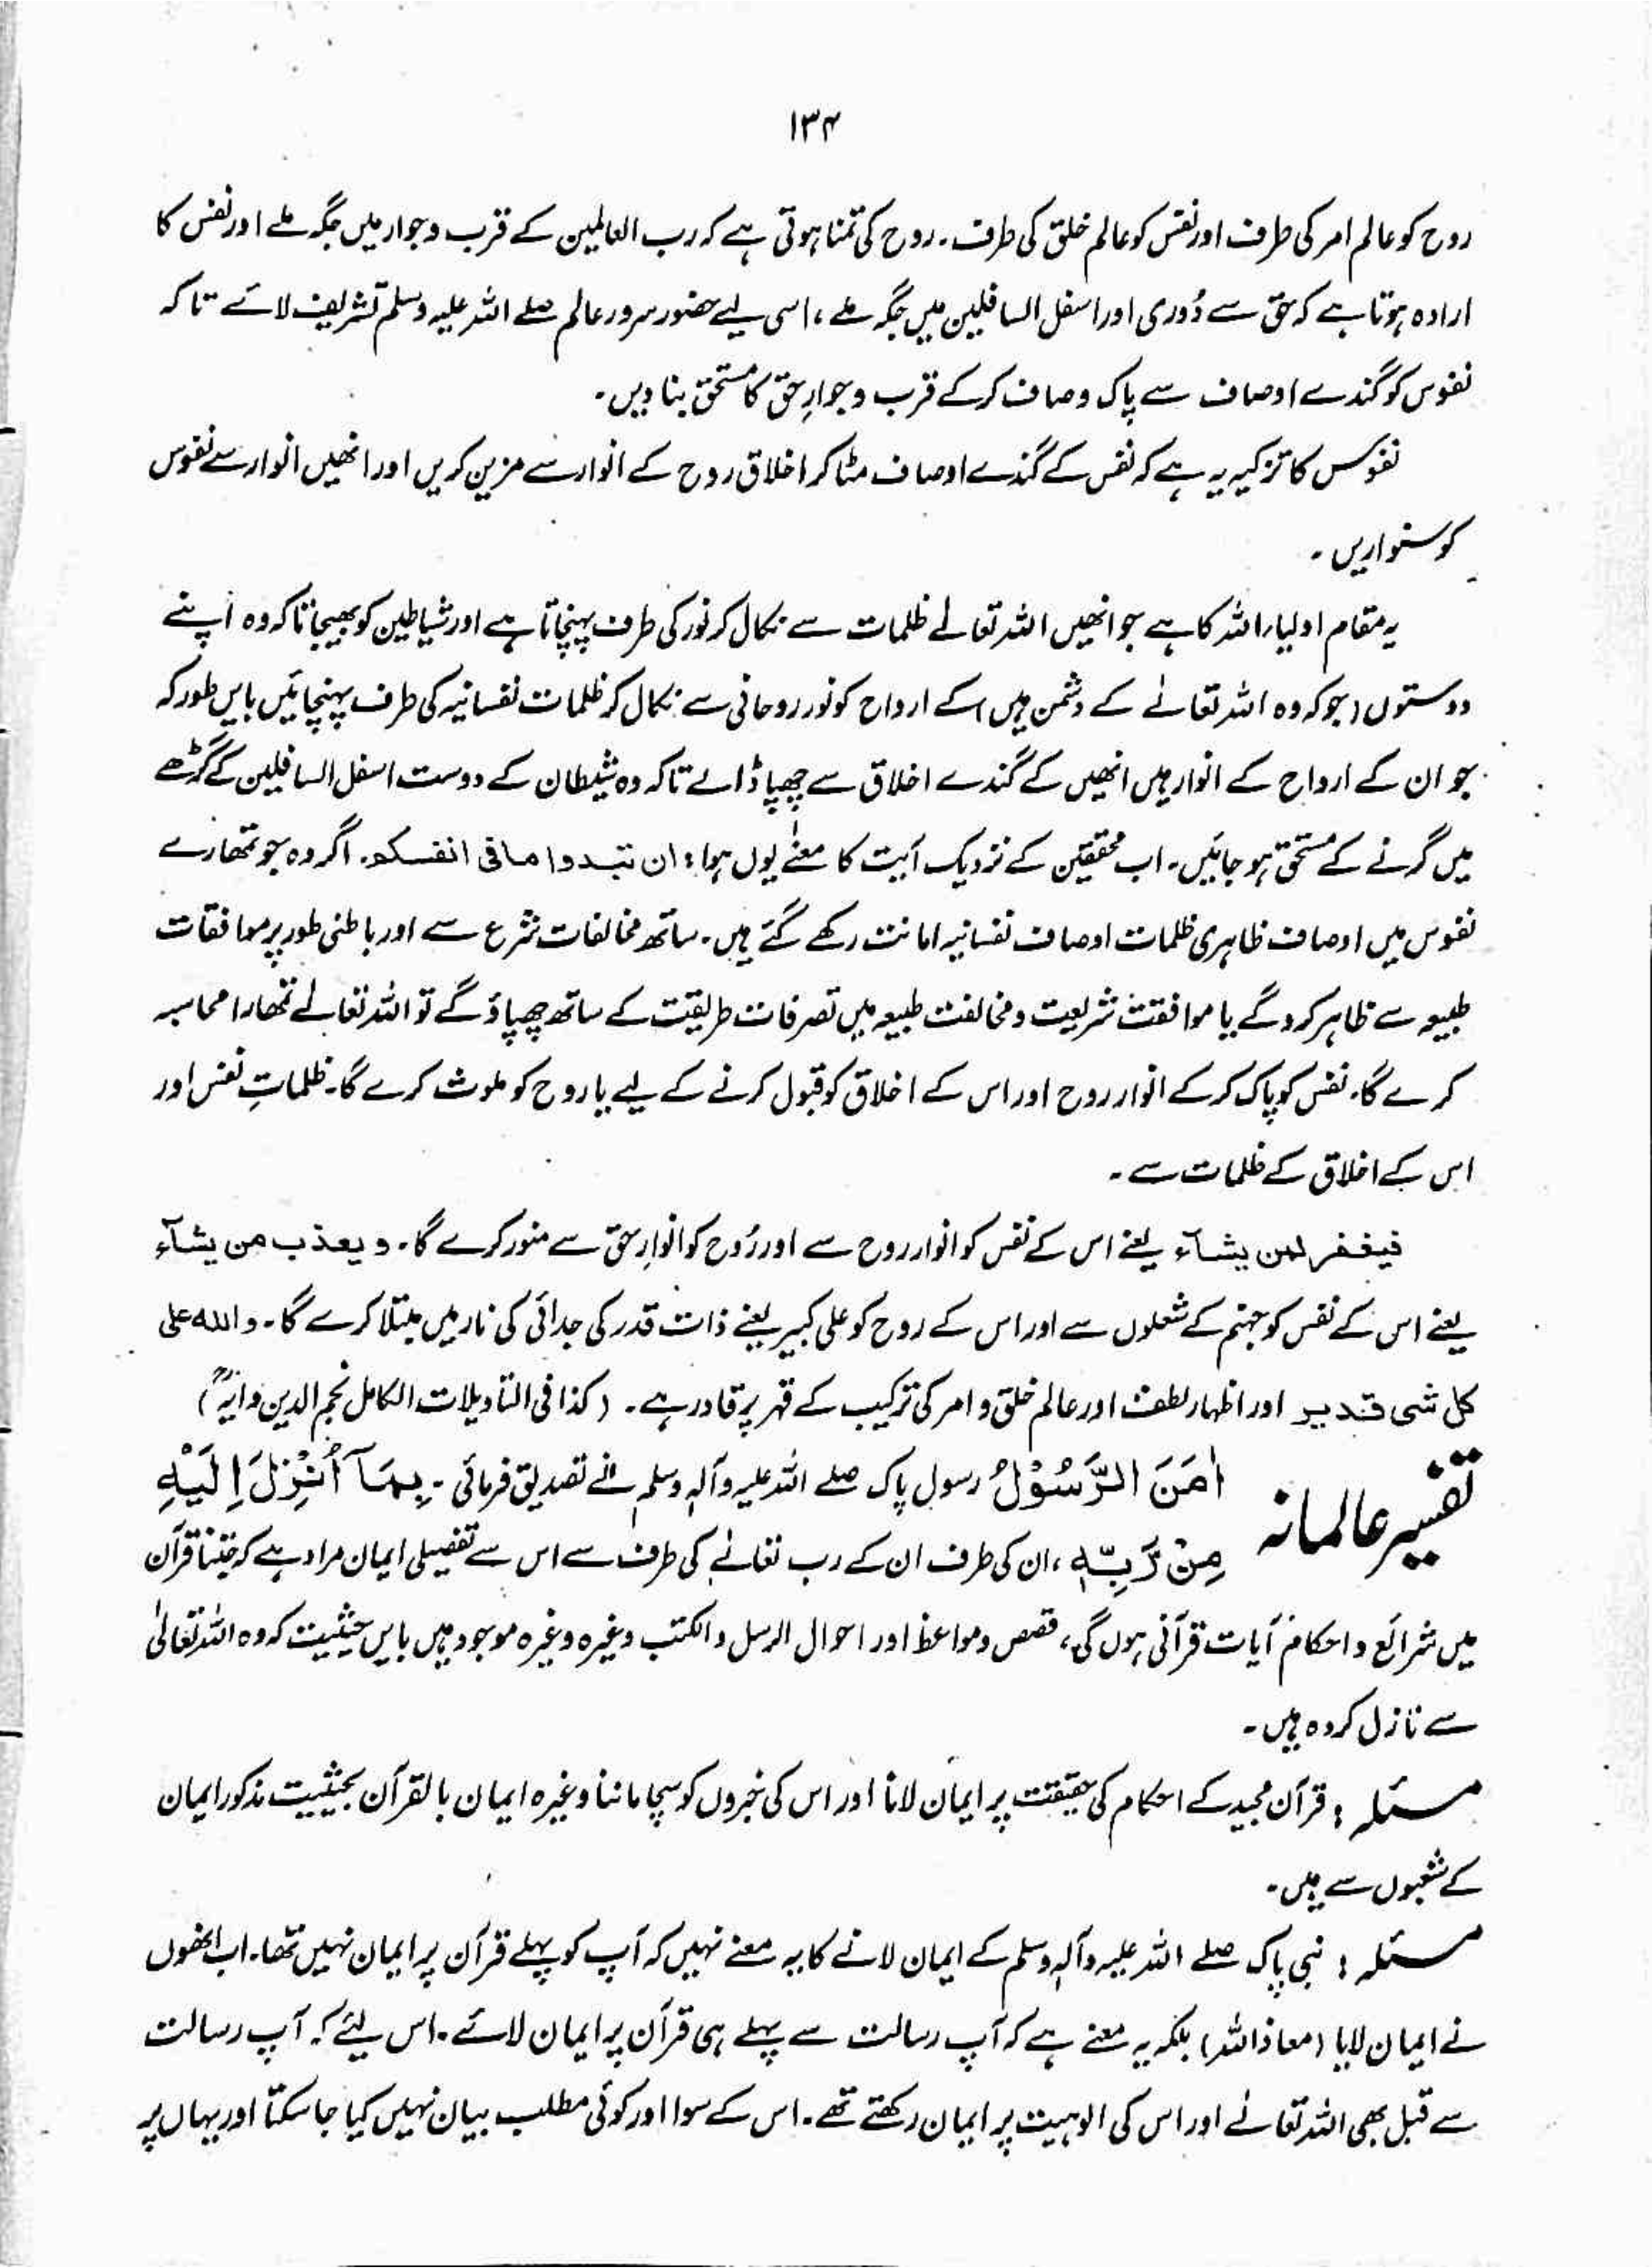 ۱۳۴
روح کو عالم امر کی طرف اور نفس کو عالم خلق کی طرف۔ روح کی تمنا ہوتی ہے کہ رب العالمین کے قرب و جوار میں جگہ ملے اور نفس کا
ارادہ ہوتا ہے کہ حق سے دُوری اور اسفل السافلین میں جگہ ملے، اسی لیے حضور سرور عالم صلے اللہ علیہ وسلم تشریف لائے تاکہ
نفوس کو گندے اوصاف سے پاک و صاف کر کے قرب و جوارِ حق کا مستحق بنا دیں۔
نفوس کا تزکیہ یہ ہے کہ نفس کے گندے اوصاف مٹا کر اخلاق روح کے انوار سے مزین کریں اور انھیں انوار سے نفوس
کو سنواریں۔
یہ مقام اولیاء اللہ کا ہے جو انھیں اللہ تعالے ظلمات سے نکال کر نور کی طرف پہنچاتا ہے اور شیاطین کو بھیجا تاکہ وہ اپنے
دوستوں (جو کہ وہ اللہ تعالٰے کے دشمن ہیں) کے ارواح کو نور روحانی سے نکال کر ظلمات نفسانیہ کی طرف پہنچائیں بایں طور کہ
جو ان کے ارواح کے انوار ہیں انھیں کے گندے اخلاق سے چھپا ڈالے تاکہ وہ شیطان کے دوست اسفل السافلین کے گڑھے
میں گرنے کے مستحق ہو جائیں۔ اب محققین کے نزدیک آیت کا معنٰے یوں ہوا: ان تبدوا ما فی انفسکم۔ اگر وہ جو تمھارے
نفوس میں اوصاف ظاہری ظلمات اوصاف نفسانیہ امانت رکھے گئے ہیں۔ ساتھ مخالفات شرع سے اور باطنی طور پر موافقات
طبیعہ سے ظاہر کرو گے یا موافقت شریعت و مخالفت طبیعہ میں تصرفات طریقت کے ساتھ چھپاؤ گے تو اللہ تعالے تمھارا محاسبہ
کرے گا۔ نفس کو پاک کر کے انوار روح اور اس کے اخلاق کو قبول کرنے کے لیے یا روح کو ملوث کرے گا۔ ظلماتِ نفس اور
اس کے اخلاق کے ظلمات سے۔
فیغفر لمن یشآء یعنے اس کے نفس کو انوار روح سے اور رُوح کو انوارِ حق سے منور کرے گا۔ و یعذب من یشآء
یعنے اس کے نفس کو جہنم کے شعلوں سے اور اس کے روح کو علی کبیر یعنے ذات قدر کی جدائی کی نار میں مبتلا کرے گا۔ واللہ علی
کل شی قدیر اور اظہار لطف اور عالم خلق و امر کی ترکیب کے قہر پر قادر ہے۔ (کذا فی التاویلات الکامل نجم الدین دایہؒ)
تفسیر عالمانہ اٰمَنَ الرَّسُوْلُ رسول پاک صلے اللہ علیہ وآلہٖ وسلم نے تصدیق فرمائی۔ بِمَآ اُنْزِلَ اِلَیْهِ
مِنْ رَّبِّهٖ، ان کی طرف ان کے رب تعالٰے کی طرف سے اس سے تفصیلی ایمان مراد ہے کہ جتنا قرآن
میں شرائع و احکام آیات قرآنی ہوں گی، قصص و مواعظ اور احوال الرسل والکتب وغیرہ وغیرہ موجود ہیں بایں حیثیت کہ وہ اللہ تعالیٰ
سے نازل کردہ ہیں۔
مسئلہ : قرآن مجید کے احکام کی حقیقت پر ایمان لانا اور اس کی خبروں کو سچا ماننا وغیرہ ایمان بالقرآن بحیثیت مذکور ایمان
کے شعبوں سے ہیں۔
مسئلہ : نبی پاک صلے اللہ علیہ وآلہٖ وسلم کے ایمان لانے کا یہ معنے نہیں کہ آپ کو پہلے قرآن پر ایمان نہیں تھا۔ اب انھوں
نے ایمان لایا (معاذاللہ) بلکہ یہ معنے ہے کہ آپ رسالت سے پہلے ہی قرآن پر ایمان لائے۔ اس لیئے کہ آپ رسالت
سے قبل بھی اللہ تعالےٰ اور اس کی الوہیت پر ایمان رکھتے تھے۔ اس کے سوا اور کوئی مطلب بیان نہیں کیا جا سکتا اور یہاں پر